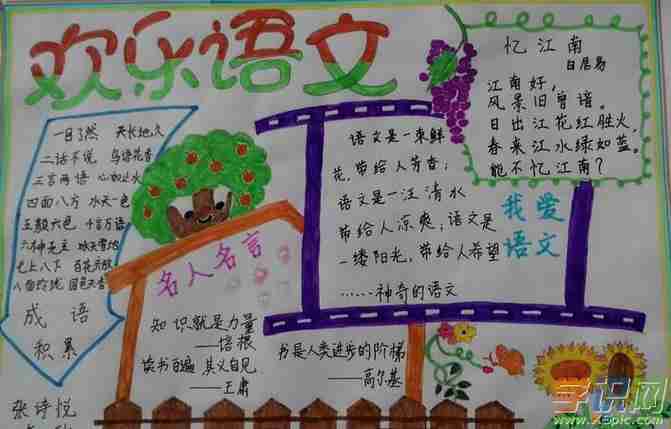 欢乐语文
忆江南
白居易
江南好,
风景旧曾谙。
日出江花红胜火,
春来江水绿如蓝。
能不忆江南?
一目了然 天长地久
二话不说 鸟语花香
三言两语 心如止水
四面八方 水天一色
五颜六色 千言万语
六神无主 冰天雪地
七上八下 百花齐放
八面玲珑 国色天香
成语
积累
语文是一束鲜
花,带给人芳香;
语文是一汪清水
带给人凉爽;语文是
一缕阳光,带给人希望
……神奇的语文
我爱
语文
名人名言
知识就是力量
——培根
读书百遍 其义自见
——王肃
书是人类进步的阶梯
——高尔基
张诗悦
学识网
www.xspic.com